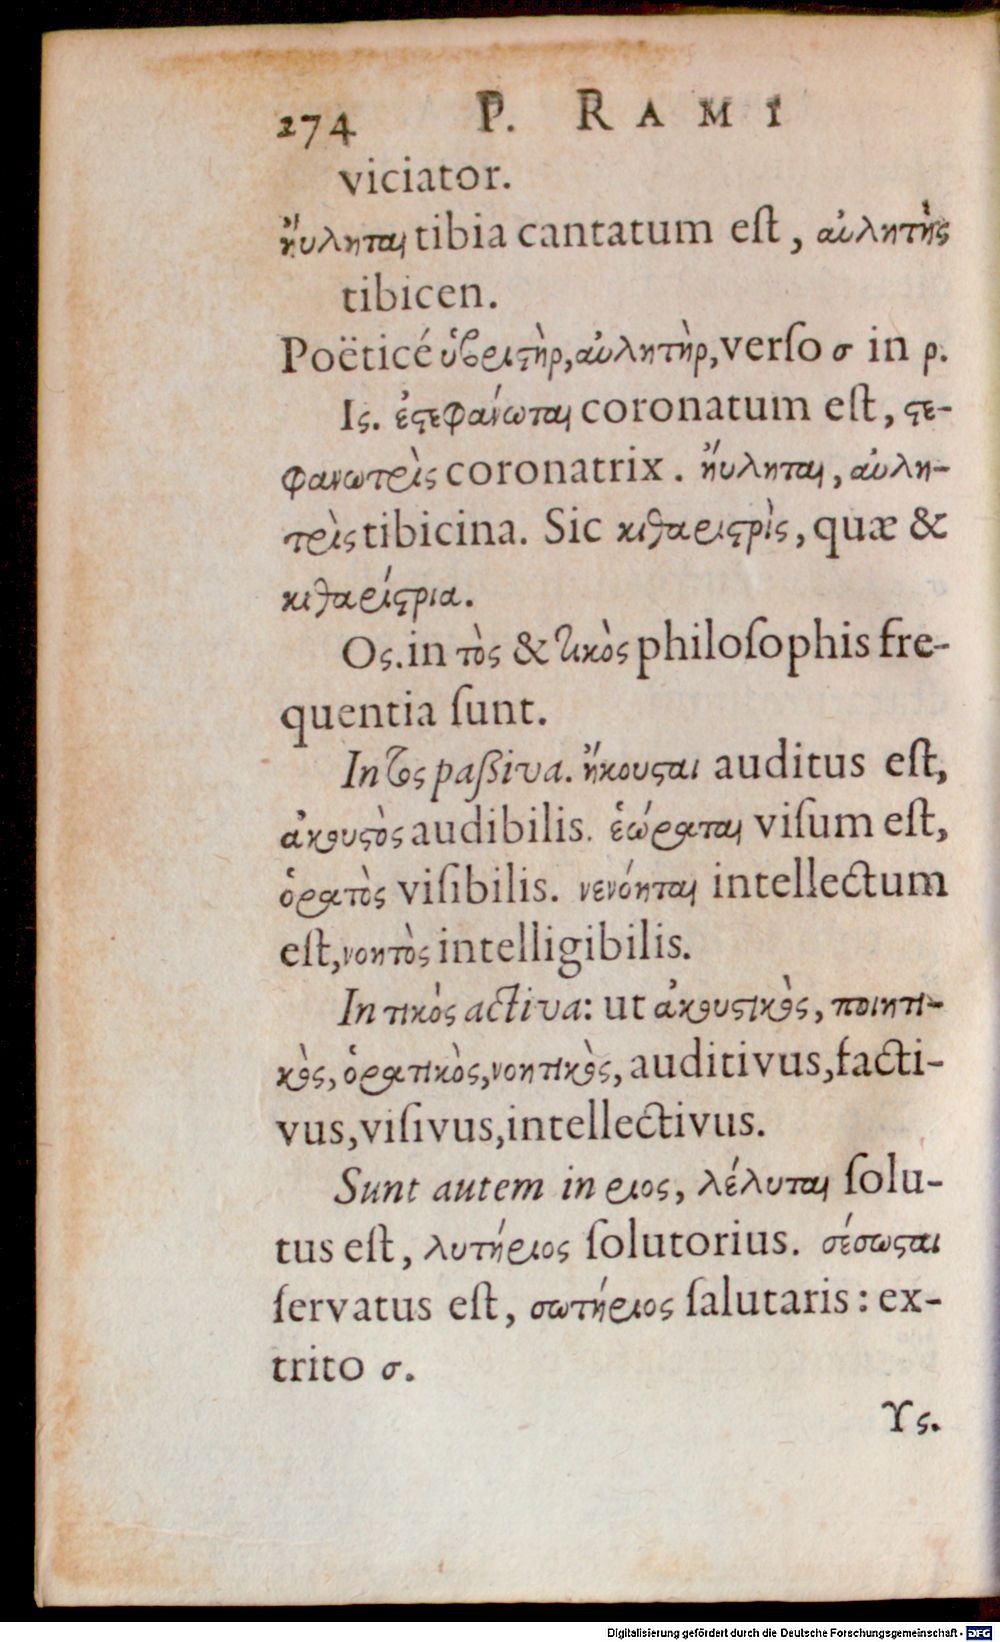 274 P. RAMI
viciator.
ηὔληται tibia cantatum eſt, αὐλητὴς
tibicen.
Poëticé ὑβριϛὴρ, αὐλητὴρ, verſo σ in ρ.
Ις. ἐϛεφανωται coronatum eſt, ϛε-
φανωτρὶς coronatrix. ηὔληται, αὐλη-
τρὶς tibicina. Sic κιθαριϛρὶς, quæ &
κιθαρίϛρια.
Ος. in τὸς & τικὸς philoſophis fre-
quentia ſunt.
In τος paſsiva. ἤκουϛαι auditus eſt,
ἀκουϛὸς audibilis. ἑώραται viſum eſt,
ὁρατὸς viſibilis. νενόηται intellectum
eſt, νοητὸς intelligibilis.
In τικὸς activa: ut ἀκουϛικὸς, ποιητι-
κὸς, ὁρατικὸς, νοητικὸς, auditivus, facti-
vus, viſivus, intellectivus.
Sunt autem in ριος, λέλυται ſolu-
tus eſt, λυτήριος ſolutorius. σέσωϛαι
ſervatus eſt, σωτήριος ſalutaris: ex-
trito σ.
Υς.
Digitalisierung gefördert durch die Deutsche Forschungsgemeinschaft - DFG